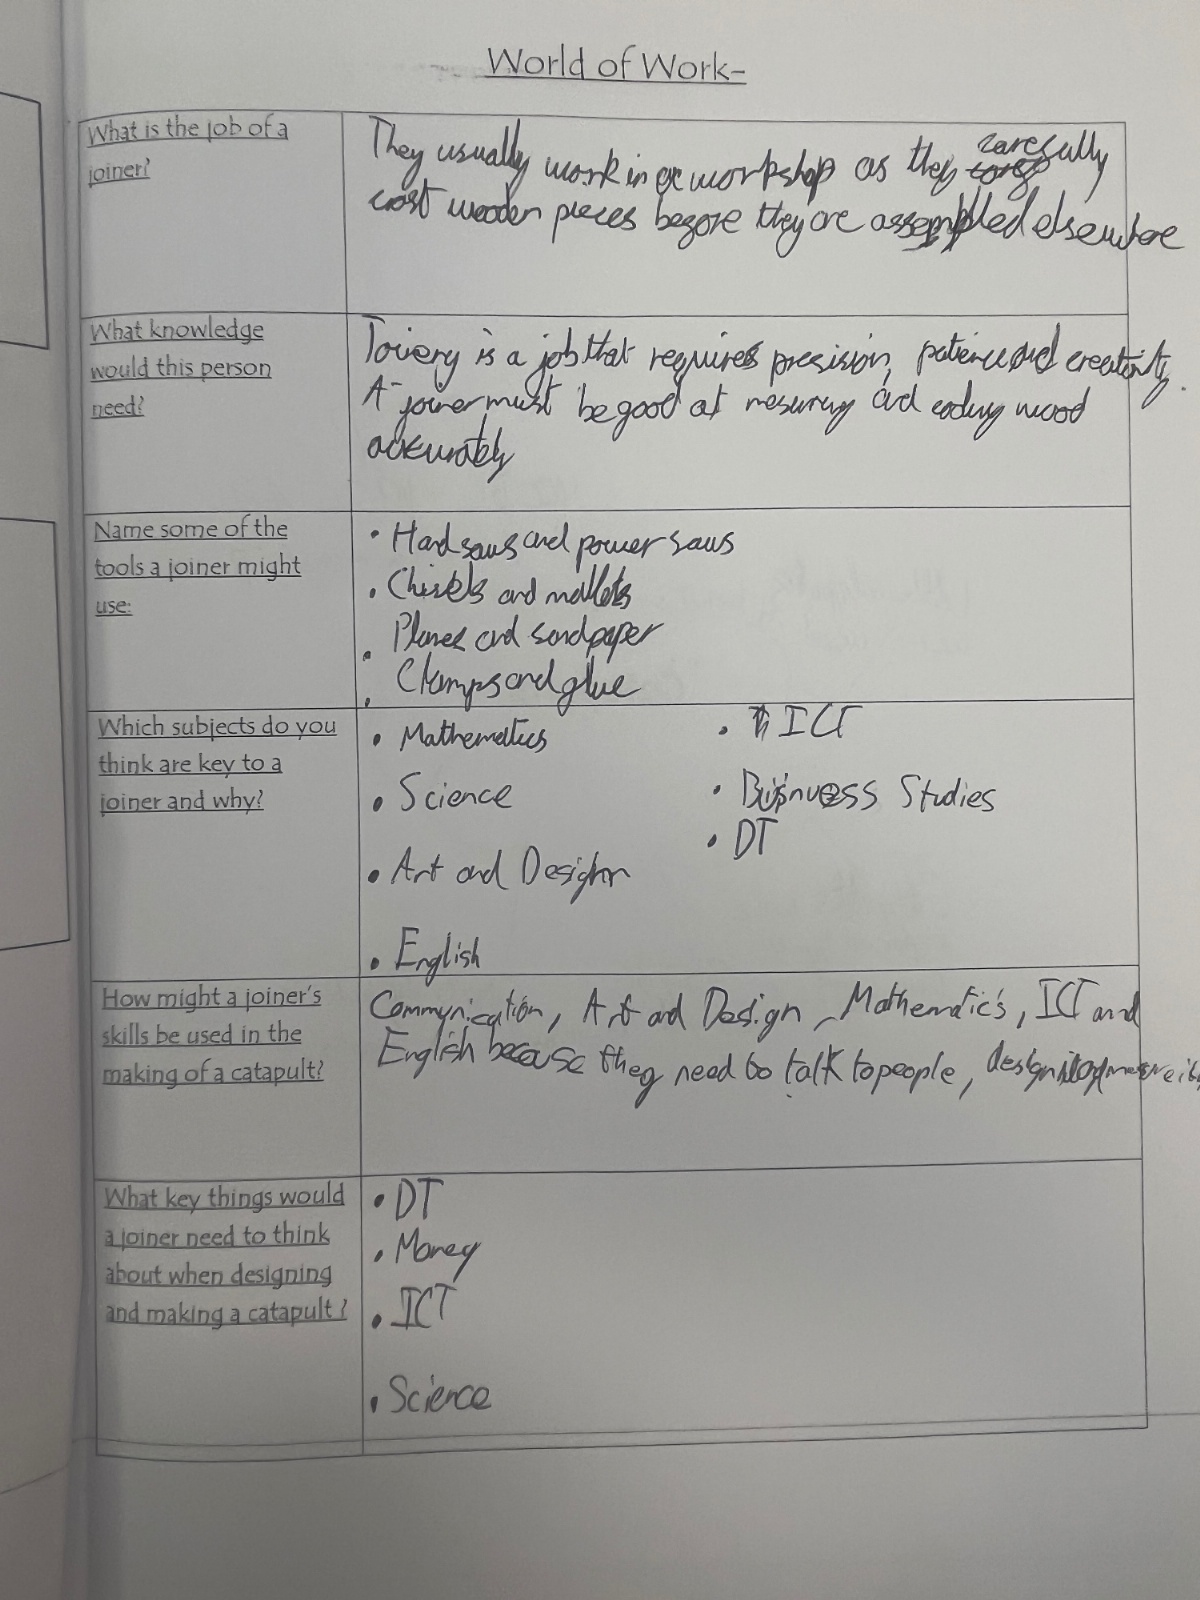 World of Work-
What is the job of a
joiner?
They usually work in a workshop as they carefully
crast wooden pieces before they are assembled elsewhere
What knowledge
would this person
need?
Joinery is a job that requires precision, patience and creativity.
A joiner must be good at mesuring and cutting wood
accurately
Name some of the
tools a joiner might
use:
• Hand saws and power saws
• Chisels and mallets
• Planes and sandpaper
• Clamps and glue
Which subjects do you
think are key to a
joiner and why?
• Mathematics
• Science
• Art and Design
• English
• ICT
• Business Studies
• DT
How might a joiner's
skills be used in the
making of a catapult?
Communication, Art and Design, Mathematic's, ICT and
English because they need to talk to people, design
What key things would
a joiner need to think
about when designing
and making a catapult?
• DT
• Money
• ICT
• Science